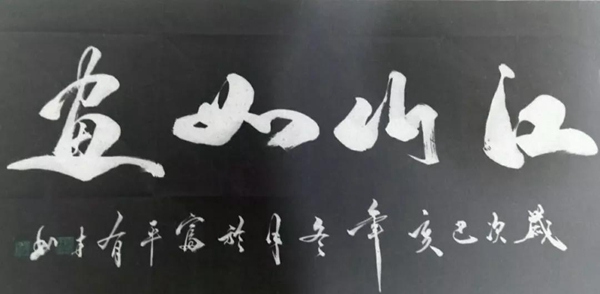 江山如画
歲次己亥年冬月於富平有才书